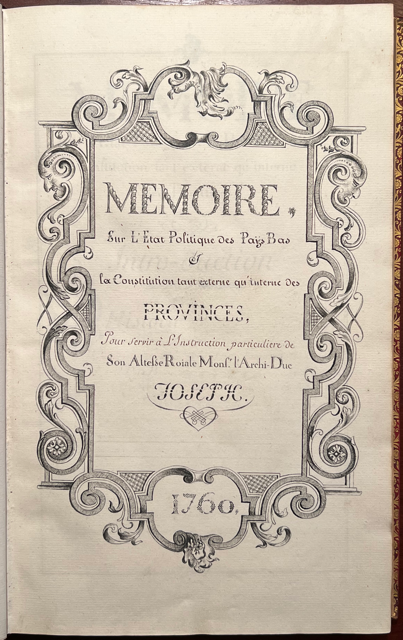 MEMOIRE,
Sur L'Etat Politique des Paÿs Bas
&
la Constitution tant externe qu'interne des
PROVINCES,
Pour servir à L'Instruction particuliere de
Son Alteße Roiale Monsr. l'Archi-Duc
JOSEPH.
1760.